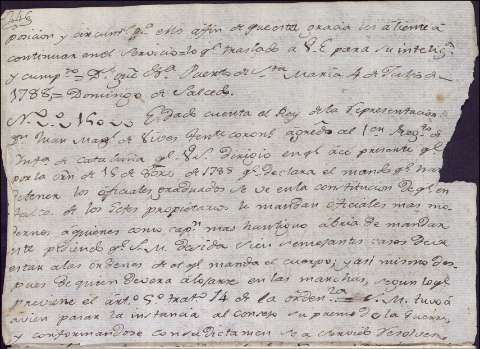 446
posicion y circunst.s q.e
en ellos affin de que esta gracia les aliente à
continuar en el Servicio lo q.e traslado à V.E. para su intelig.a
y cump.to = D.s gu.e Puerto de S.ta Maria 4 de Julio de
1788 = Domingo de Salcedo.
Enterado cuenta el Rey de la Representacion
Juan de Vives Tente coronel agreg.do al 1.er Reg.to de
Inf.a de cataluña q.e V.E. dirigio en q.e hace presente q.e
por la orn de 15 de 1788 q.e declara el mando q.e han
de tener los oficiales graduados se ve en la constitucion de q.e en
falta de los Gefes propietarios le mandan oficiales mas mo-
dernos aquienes como cap.n mas hantiguo abria de mandar
este pidiendo q.e S.M. decida si en semejantes casos deve
estar a las órdenes de el q.e manda el cuerpo, y asi mismo des-
pues de quien devera alojarse en las marchas, segun lo q.e
previene el art.o 5.o trat.o de la orden.za = S.M. tuvo à
vien pasar la instancia al Consejo supremo de la Guerra,
y conformandose con su dictamen se a servido resolver